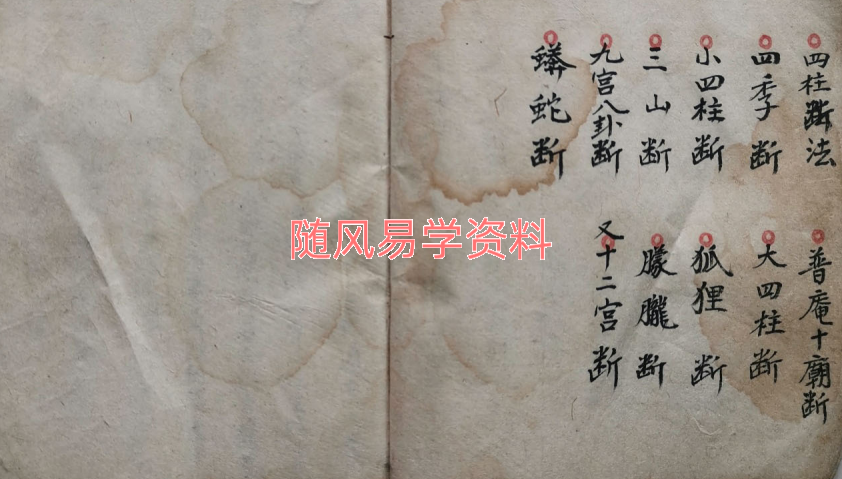 四柱断法
普庵十廟断
四季断
大四柱断
小四柱断
狐狸断
三山断
朦朧断
九宫八卦断
又十二宫断
蛇断
随风易学资料